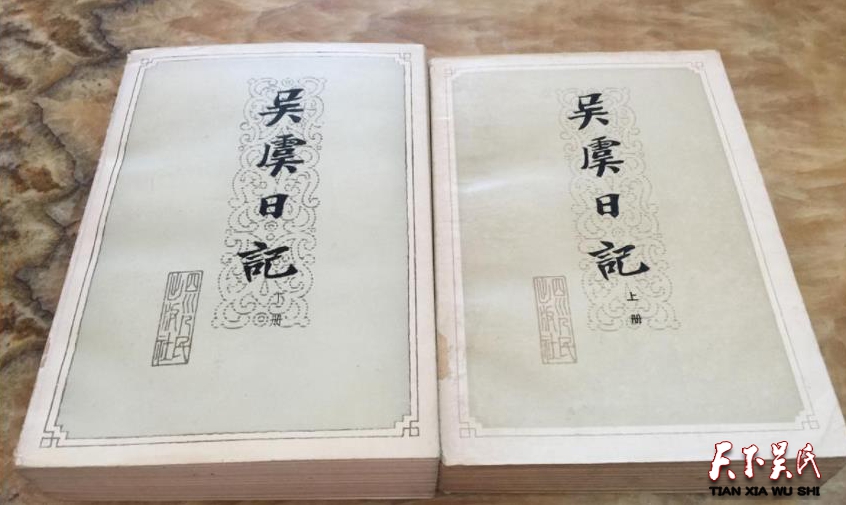 吴虞日記
下册
四川人民
出版社
吴虞日記
上册
四川人民
出版社
天下吴氏
TIAN XIA WU SHI